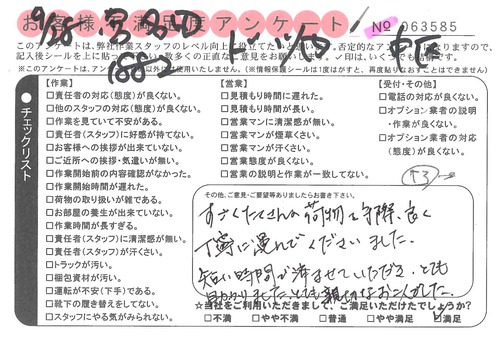 お客様満足度アンケート
№ 063585
このアンケートは、弊社作業スタッフのレベル向上に役立てたいと思います。否定的なアン
記入後シールを上に貼って
数多くの正直なご意見をお願いします。✓印は、いくつでも結構です。
※このアンケートは、アン
以外は使用いたしません。(※情報保護シールは1度はがすと、再度貼りなおすことはできません)
チェックリスト
【作業】
□責任者の対応(態度)が良くない。
□他のスタッフの対応(態度)が良くない。
□作業を見ていて不安がある。
□責任者(スタッフ)に好感が持てない。
□お客様への挨拶が出来ていない。
□ご近所への挨拶・気遣いが無い。
□作業開始前の内容確認がなかった。
□作業開始時間が遅れた。
□荷物の取り扱いが雑である。
□お部屋の養生が出来ていない。
□作業時間が長すぎる。
□責任者(スタッフ)に清潔感が無い。
□責任者(スタッフ)が汗くさい。
□トラックが汚い。
□梱包資材が汚い。
□運転が不安(下手)である。
□靴下の履き替えをしてない。
□スタッフにやる気がみられない。
【営業】
□見積もり時間に遅れた。
□見積もり時間が長い。
□営業マンに清潔感が無い。
□営業マンが煙草くさい。
□営業マンが汗くさい。
□営業態度が良くない。
□営業の説明と作業が一致してない。
【受付・その他】
□電話の対応が良くない。
□オプション業者の説明・作業が良くない。
□オプション業者の対応(態度)が良くない。
その他、ご意見・ご要望等ありましたらお書き下さい。
すごくたくさんの荷物を手際良く
丁寧に運んでくださいました。
短い時間で済ませていただき、とても
助かりました。とても親切なお二人でした。
☆当社をご利用いただきまして、ご満足いただけたでしょうか?
□不満 □やや不満 □普通 □やや満足 ☑満足